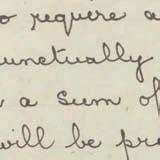 to require a
punctually
a sum of
will be pr